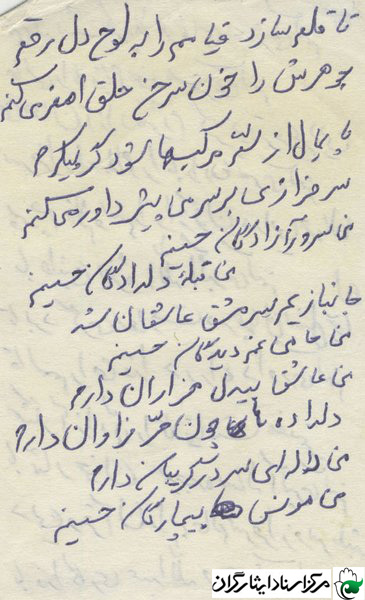 تا قلم سازد قیامم را به لوح دل رقم
جوهرش را خون سرخ حلق اصغر می کنم
پایمال از سُم مرکبها شود گر پیکرم
سرفرازی بر سر نی پیش داور می کنم
من سرور آزادگان حسینم
من قبله دلدادگان حسینم
جانبازیم سرمشق عاشقان شد
من حامی غمدیدگان حسینم
من عاشق بیدل هزاران دارم
دلداده ها چون حرّ فراوان دارم
من لاله ای سر در گریبان دارم
من مونس بیچارگان حسینم
مرکز اسناد ایثارگران